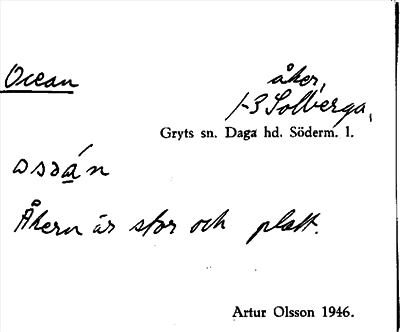 Ocean
åker,
1-3 Solberga,
Gryts sn. Daga hd. Söderm. l.
ɷsəán
Åkern är stor och platt.
Artur Olsson 1946.